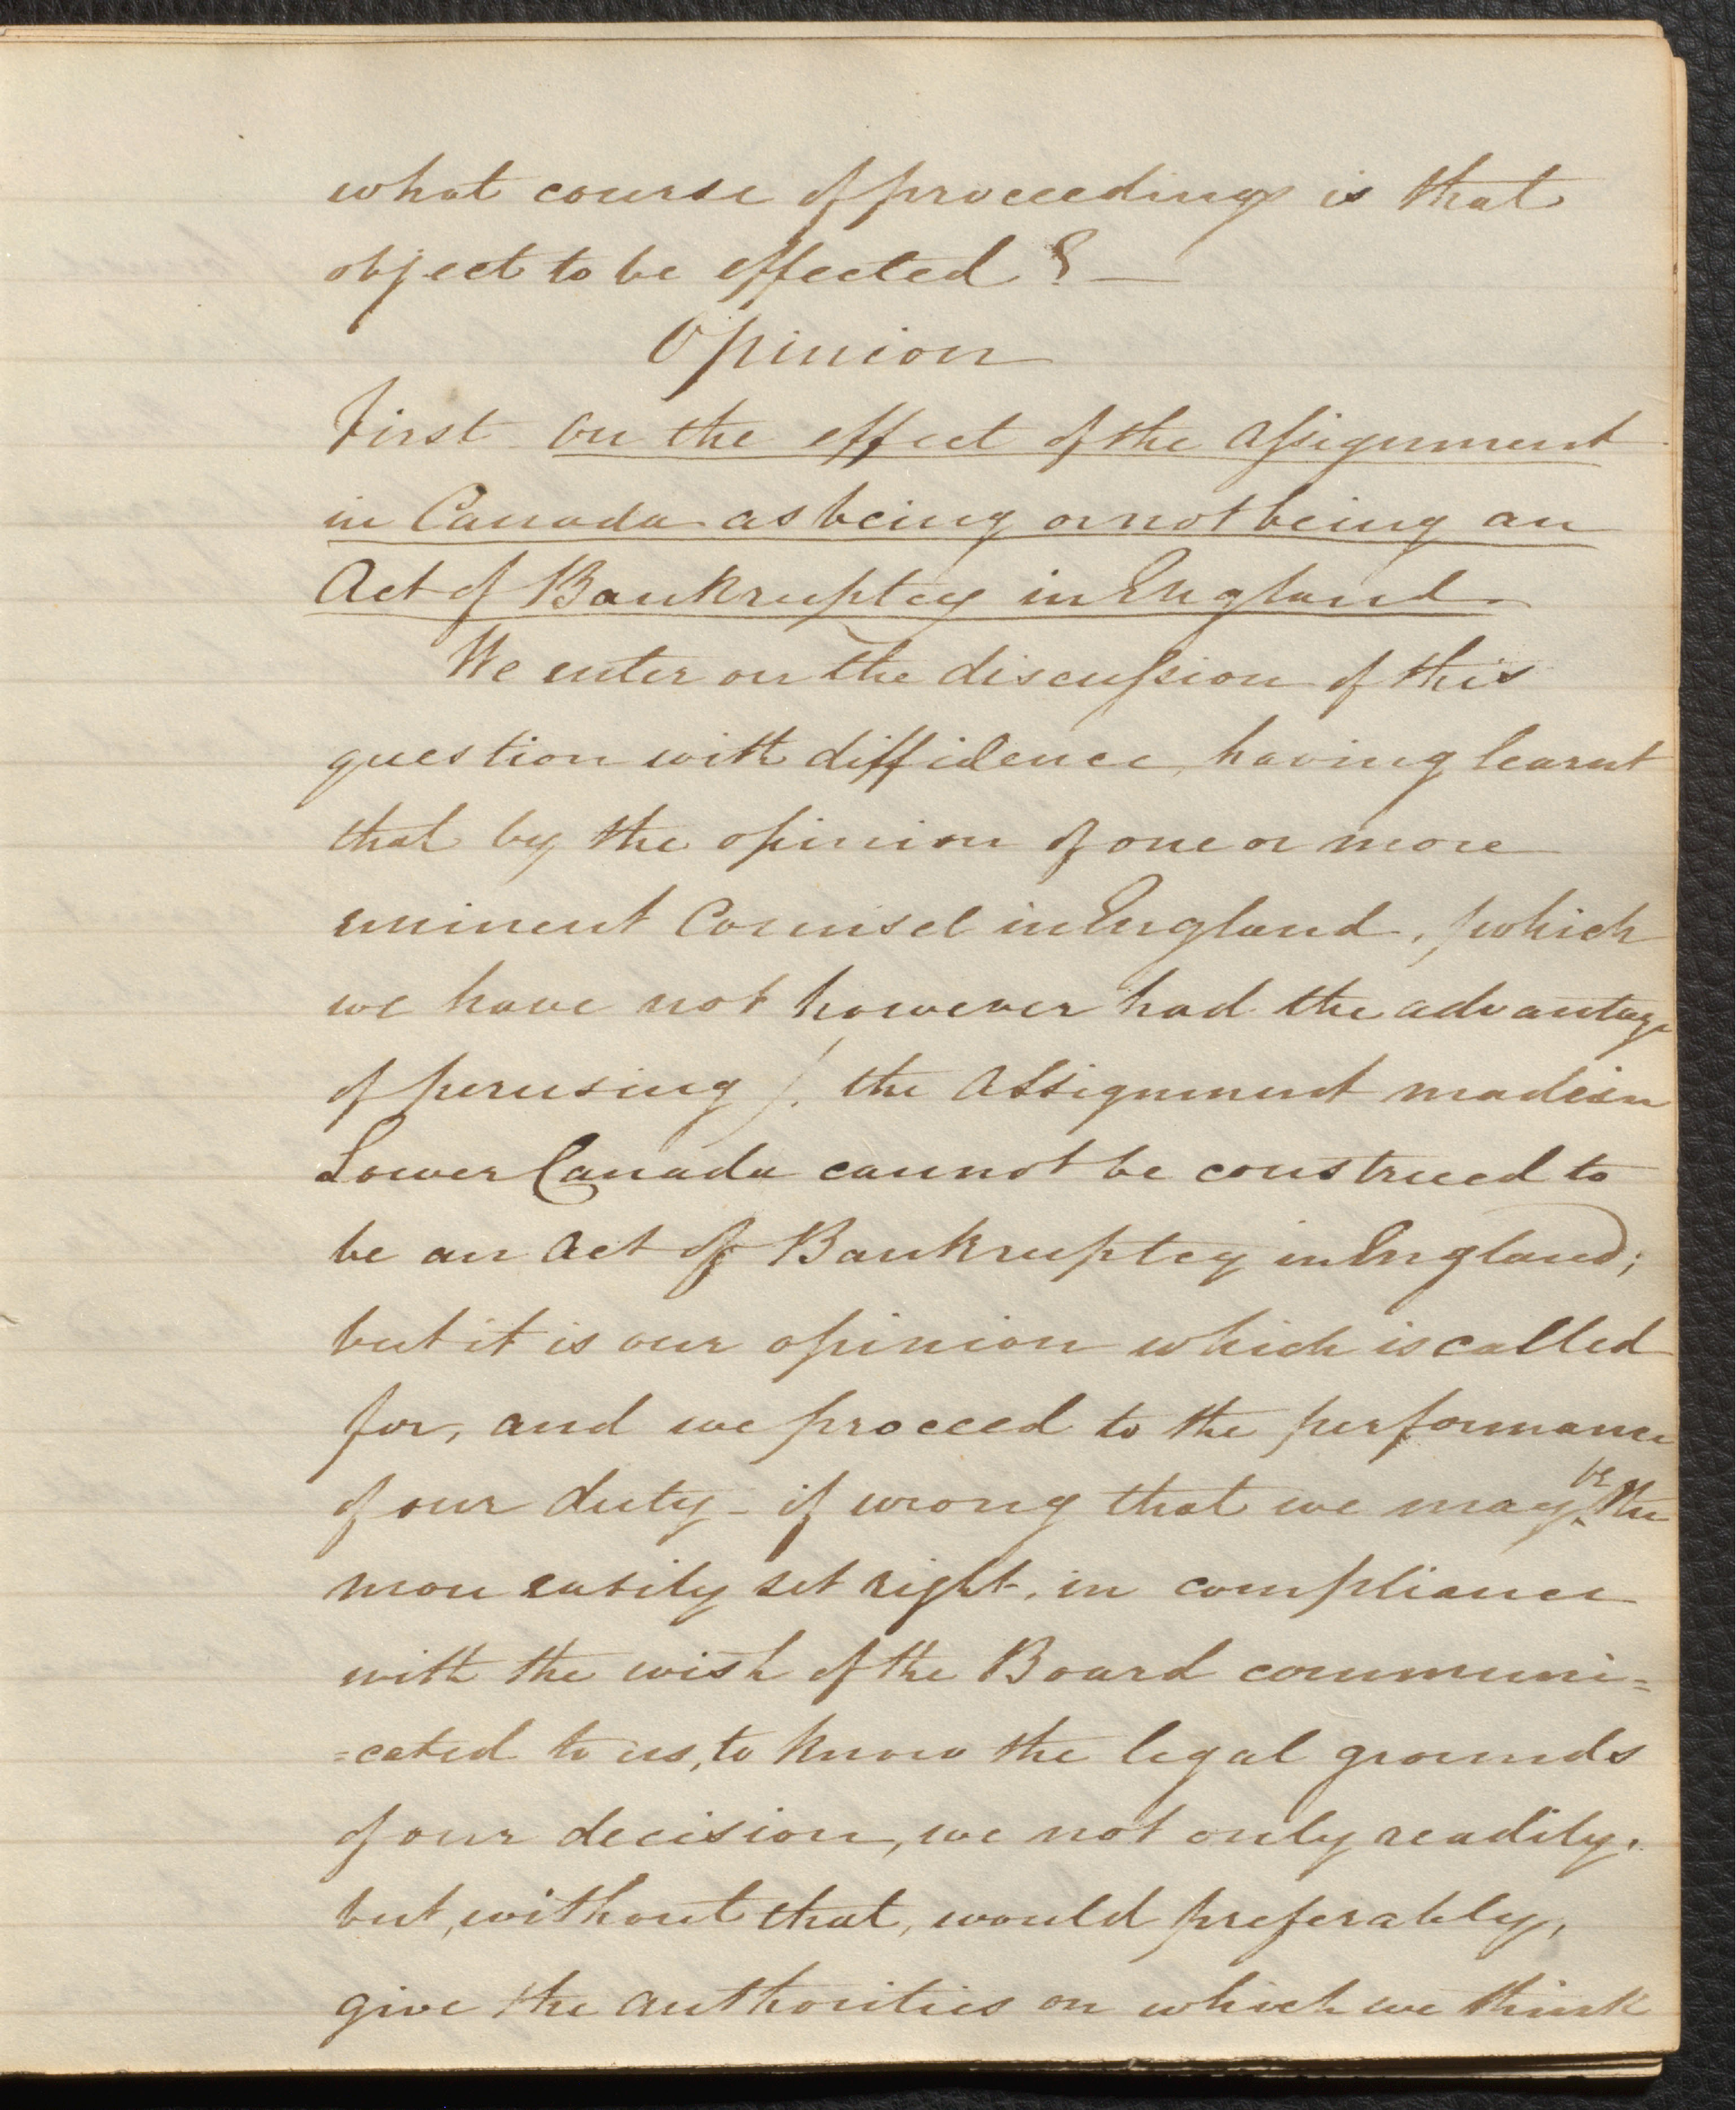 what course of proceedings is that
object to be effected ? —
Opinion
First on the effect of the assignment
in Canada as being or not being an
Act of Bankruptcy in England
We enter on the discussion of this
question with diffidence, having learnt
that by the opinion of one or more
eminent Counsel in England, (which
we have not however had the advantage
of perusing), the Assignment made in
Lower Canada cannot be construed to
be an Act of Bankruptcy in England;
but it is our opinion which is called
for, and we proceed to the performance
of our duty – if wrong that we may be the
more easily set right, in compliance
with the wish of the Board communi=
=cated to us, to know the legal grounds
of our decision, we not only readily,
but, without that, would preferably,
give the authorities on which we think